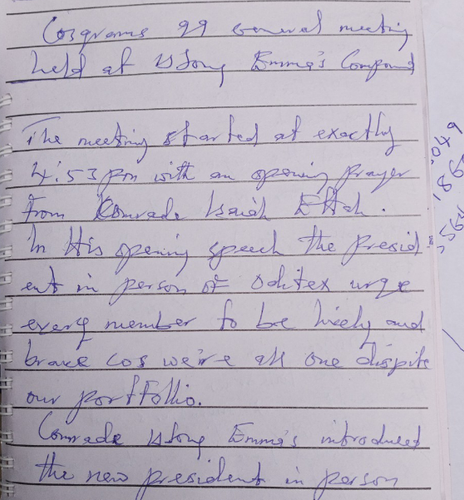 Cosgrams 99 General meeting
held at Ustong Emma's Compound
The meeting started at exactly
4:53pm with an opening prayer
from Komrade Isaiah Ettah.
In His opening speech the presid
ent in person of Oditex urge
every member to be lively and
brave cos we're all one dispite
our portfolio.
Comrade Ustong Emma's introduced
the new president in person